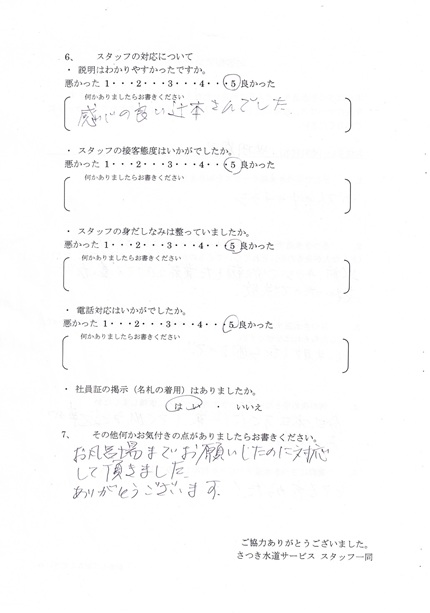 6、 スタッフの対応について
・ 説明はわかりやすかったですか。
悪かった 1・・・2・・・3・・・4・・・5 良かった
何かありましたらお書きください
感じの良い辻本さんでした
・ スタッフの接客態度はいかがでしたか。
悪かった 1・・・2・・・3・・・4・・・5 良かった
何かありましたらお書きください
・ スタッフの身だしなみは整っていましたか。
悪かった 1・・・2・・・3・・・4・・・5 良かった
何かありましたらお書きください
・ 電話対応はいかがでしたか。
悪かった 1・・・2・・・3・・・4・・・5 良かった
何かありましたらお書きください
・ 社員証の掲示（名札の着用）はありましたか。
はい ・ いいえ
7、 その他何かお気付きの点がありましたらお書きください。
お風呂場までお願いしたのに対応
して頂きました
ありがとうございます
ご協力ありがとうございました。
さつき水道サービス スタッフ一同